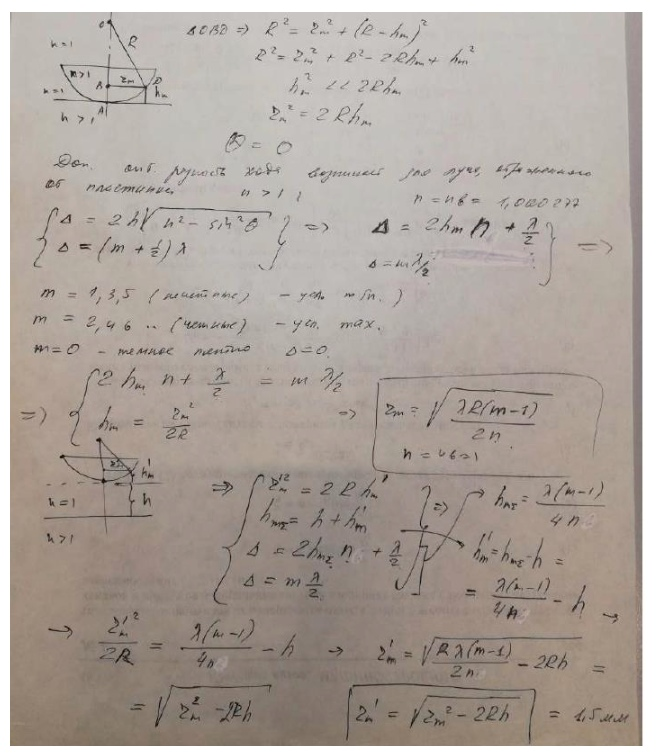 O
n=1
R
n>1
n=1
B
r_m
D
h_m
A
n>1
ΔOBD => R² = r_m² + (R - h_m)²
R² = r_m² + R² - 2Rh_m + h_m²
h_m² << 2Rh_m
r_m² = 2Rh_m
θ = 0
Доп. опт разность хода возникает для луча, отраженного
от пластинки n > 1, n = n_в = 1,000277
Δ = 2h√(n² - sin²θ) => Δ = 2h_m n + λ/2 =>
Δ = (m + 1/2)λ Δ = mλ/2
m = 1,3,5 (нечетные) - усл. min.)
m = 2,4 6 .. (четные) - усл. max.
m=0 - темное пятно Δ=0.
=> 2h_m n + λ/2 = m λ/2
h_m = r_m²/2R => r_m = √(λR(m-1)/2n)
n = n_в = 1
h'_m
n=1
h
n>1
=> r_m'² = 2Rh_m' => h_mΣ = λ(m-1)/4n
h_mΣ = h + h'_m
Δ = 2h_mΣ n + λ/2 h'_m = h_mΣ - h =
Δ = m λ/2 = λ(m-1)/4n - h →
→ r'_m²/2R = λ(m-1)/4n - h → r'_m = √(Rλ(m-1)/2n - 2Rh) =
= √(r_m² - 2Rh) r'_m = √(r_m² - 2Rh) = 1,5 мм